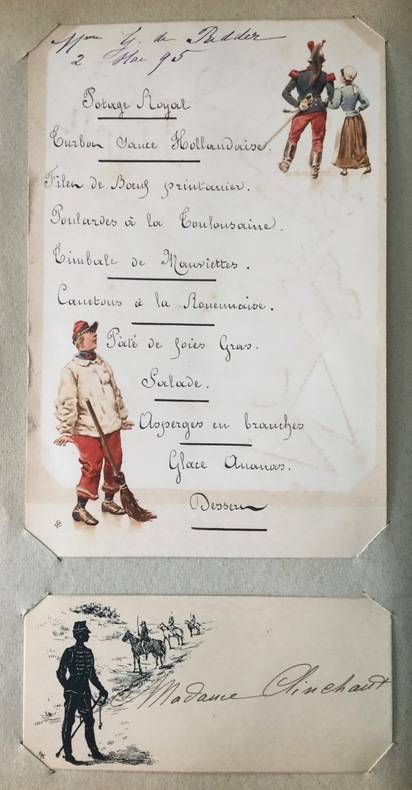 Mme G. de Ridder
2 Mai 95
Potage Royal
Turbot Sauce Hollandaise.
Filet de Bœuf printanier.
Poulardes à la Toulousaine.
Timbale de Mauviettes.
Canetons à la Rouennaise.
Pâté de foies Gras.
Salade.
Asperges en branches
Glace Ananas.
Dessert
Madame Clinchant